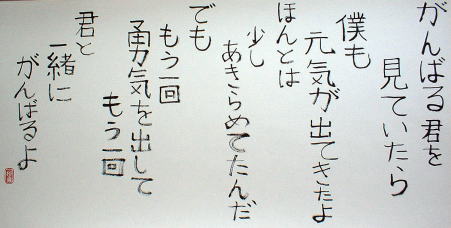 がんばる君を
見ていたら
僕も
元気が出てきたよ
ほんとは
少し
あきらめてたんだ
でも
もう一回
勇気を出して
もう一回
君と
一緒に
がんばるよ